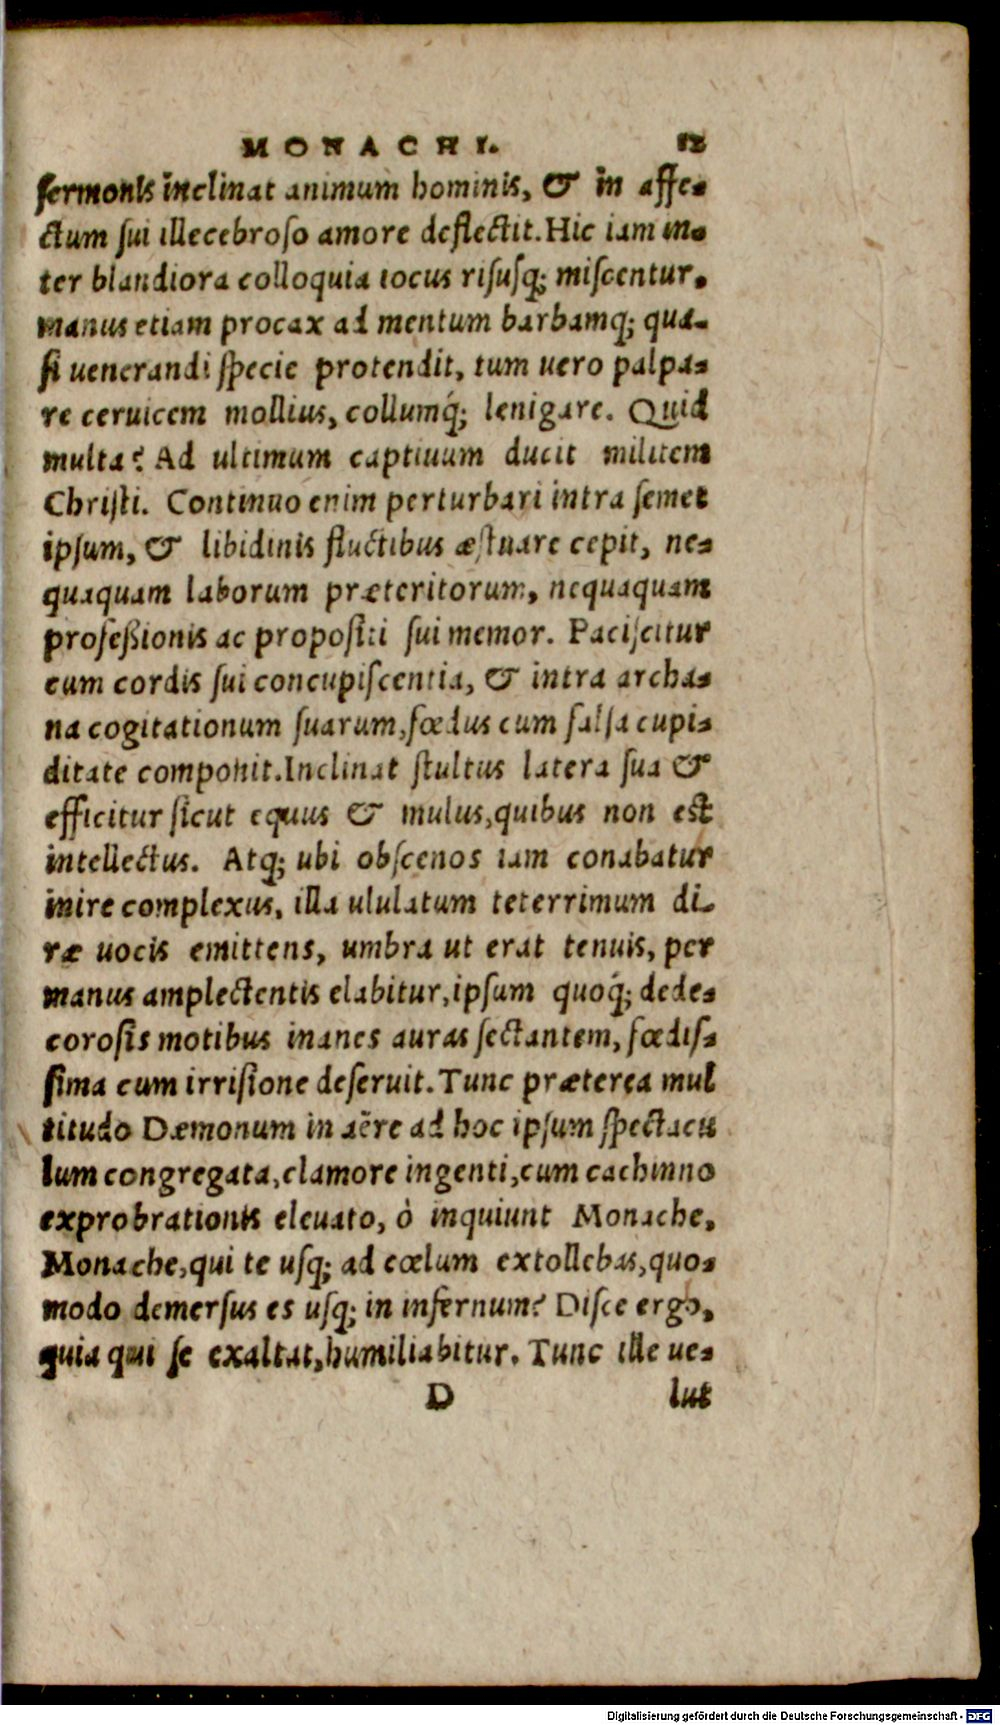 MONACHI. 12
sermonis inclinat animum hominis, & in affe-
ctum sui illecebroso amore deflectit. Hic iam in-
ter blandiora colloquia iocus risusq; miscentur.
manus etiam procax ad mentum barbamq; qua-
si uenerandi specie protendit, tum uero palpa-
re ceruicem mollius, collumq́; lenigare. Quid
multa? Ad ultimum captiuum ducit militem
Christi. Continuo enim perturbari intra semet
ipsum, & libidinis fluctibus æstuare cepit, ne-
quaquam laborum præteritorum, nequaquam
professionis ac propositi sui memor. Paciscitur
cum cordis sui concupiscentia, & intra archa-
na cogitationum suarum, fœdus cum falsa cupi-
ditate componit. Inclinat stultus latera sua &
efficitur sicut equus & mulus, quibus non est
intellectus. Atq; ubi obscenos iam conabatur
inire complexus, illa ululatum teterrimum di-
ræ uocis emittens, umbra ut erat tenuis, per
manus amplectentis elabitur, ipsum quoq́; dede-
corosis motibus inanes auras sectantem, fœdis-
sima cum irrisione deseruit. Tunc præterea mul
titudo Dæmonum in aëre ad hoc ipsum spectacu
lum congregata, clamore ingenti, cum cachinno
exprobrationis eleuato, ò inquiunt Monache,
Monache, qui te usq; ad cœlum extollebas, quo-
modo demersus es usq; in infernum? Disce ergo,
quia qui se exaltat, humiliabitur. Tunc ille ue-
D lut
Digitalisierung gefördert durch die Deutsche Forschungsgemeinschaft - DFG